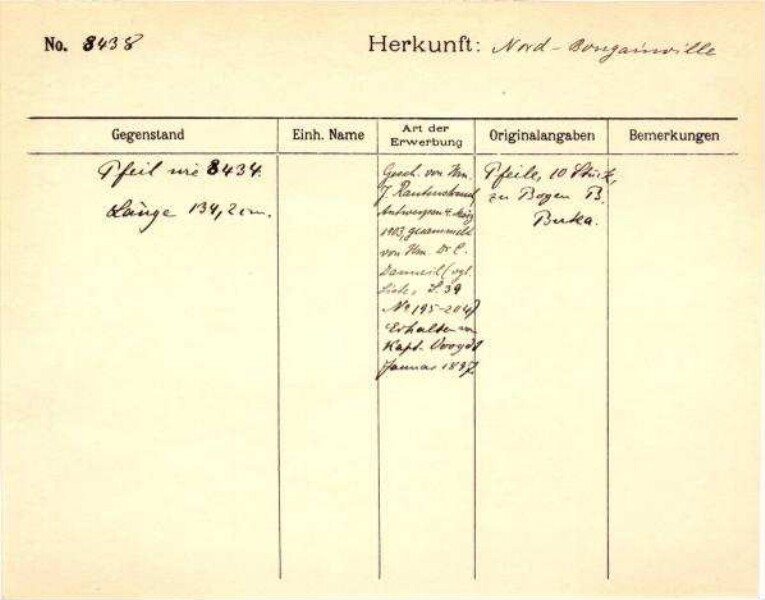 No. 8438
Herkunft: Nord-Bougainville
Gegenstand
Einh. Name
Art der Erwerbung
Originalangaben
Bemerkungen
Pfeil wie 8434.
Länge 134,2 cm.
Gesch. von Hrn.
J. Rautenstrauch
Antwerpen 4. März
1903, gesammelt
von Hrn. Dr C.
(vgl.
Liste, S. 39
No 195-204)
Erhalten von
Kapt. Voogdt
Januar 1897
Pfeile, 10 Stück,
zu Bogen B.
Buka.